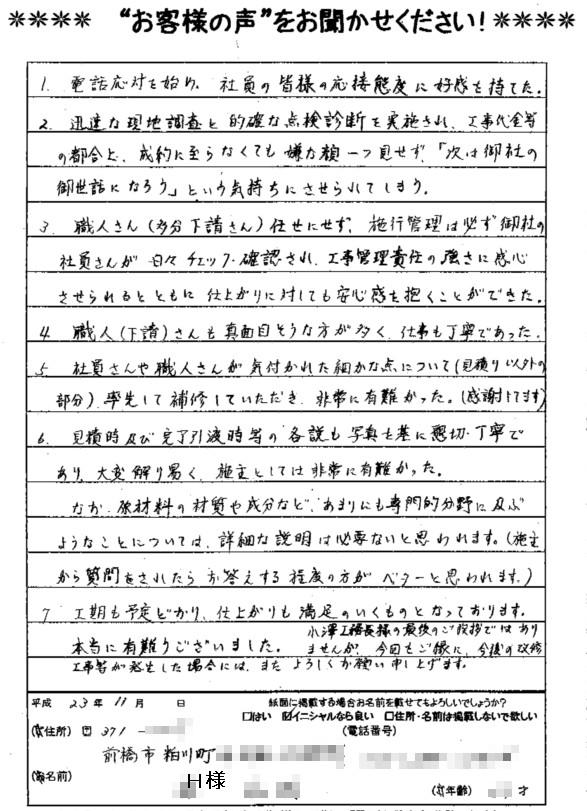 ＊＊＊＊ “お客様の声”をお聞かせください！＊＊＊＊
1. 電話応対を始め、社員の皆様の応接態度に好感を持てた。
2. 迅速な現地調査と的確な点検診断を実施され、工事代金等
の都合上、成約に至らなくても嫌な顔一つ見せず、「次は御社の
御世話になろう」という気持ちにさせられてしまう。
3. 職人さん（多分下請さん）任せにせず、施行管理は必ず御社の
社員さんが日々チェック・確認され、工事管理責任の強さに感心
させられるとともに仕上がりに対しても安心感を抱くことができた。
4. 職人（下請）さんも真面目そうな方が多く、仕事も丁寧であった。
5. 社員さんや職人さんが気付かれた細かな点について（見積り以外の
部分）率先して補修していただき、非常に有難かった。（感謝してます）
6. 見積時及び完了引渡時等の各説も写真を基に懇切・丁寧で
あり、大変解り易く、施主としては非常に有難かった。
なお、原材料の材質や成分など、あまりにも専門的分野に及ぶ
ようなことについては、詳細な説明は必要ないと思われます。（施主
から質問をされたらお答えする程度の方がベターと思われます。）
7. 工期も予定どおり、仕上がりも満足のいくものとなっております。
本当に有難うございました。
小澤工務長様の最後のご挨拶ではあり
ませんが、今回をご縁に、今後の改修
工事等が発生した場合には、またよろしくお願い申し上げます。
平成 23年 11月 日
紙面に掲載する場合お名前を載せてもよろしいでしょうか？
□はい ☑イニシャルなら良い □住所・名前は掲載しないで欲しい
(ご住所) 〒 371-
(電話番号)
前橋市粕川町
(お名前)
H様
(ご年齢) 才